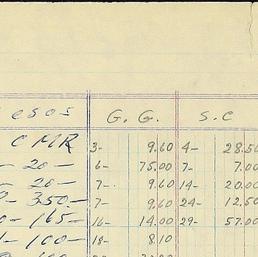 esos G. G. S. C
CMR 3- 9.60 4- 28.50
- 20- 6- 75.00 7- 7.00
- 20- 7- 9.60 14- 20.00
- 350.- 7- 9.60 24- 12.50
0- 165- 16- 14.00 29- 57.00
1- 100- 18- 8.10